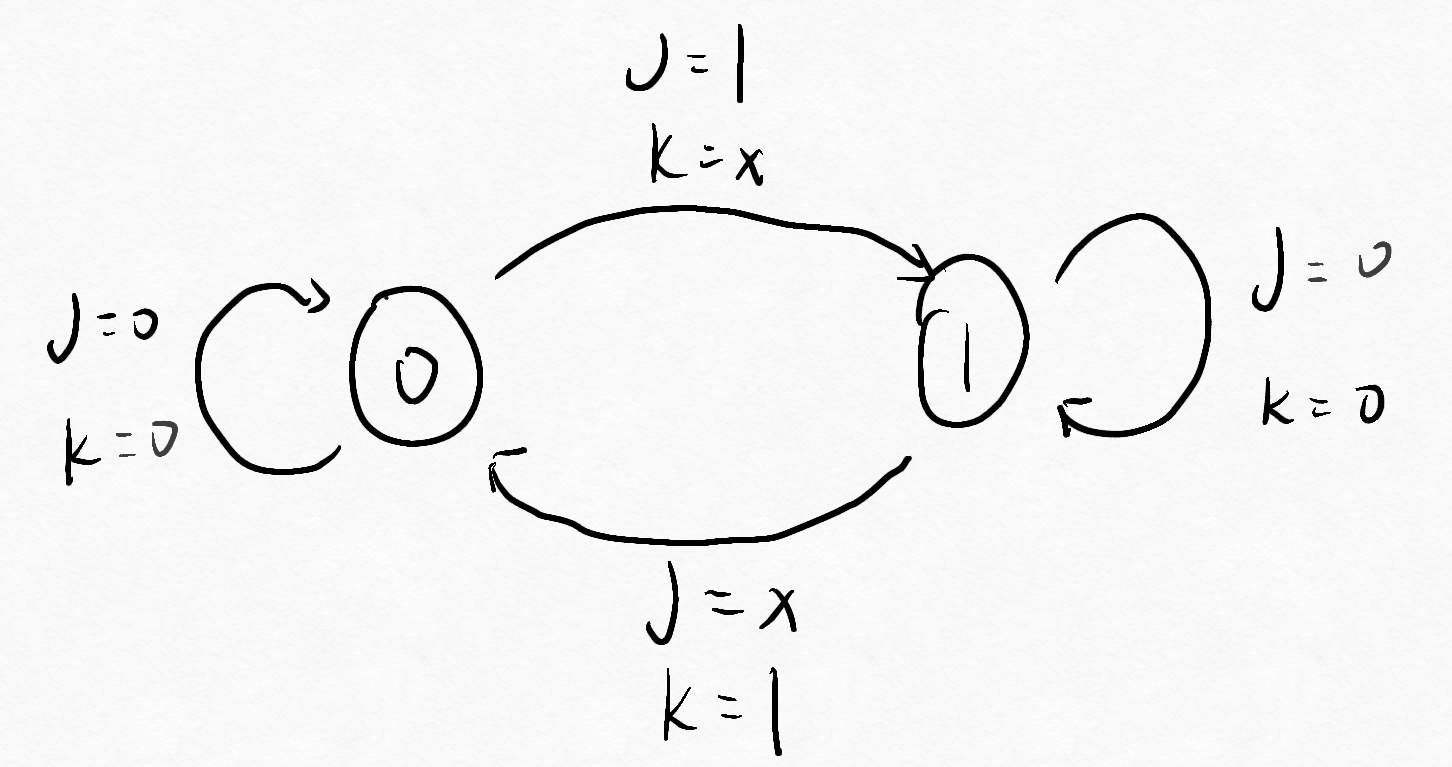 J = 1
K = x
J = 0
K = 0
0
1
J = 0
K = 0
J = x
K = 1